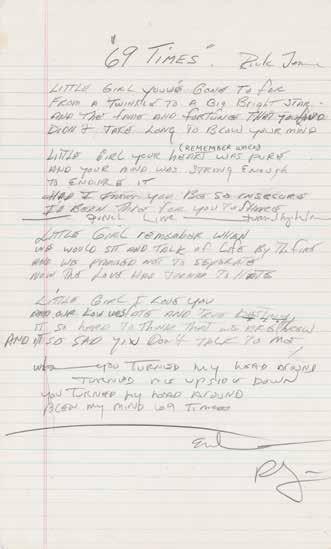 "69 TIMES". Rick James
LITTLE GIRL YOUVE GONE TO FAR
FROM A TWINKLE TO A BIG BRIGHT STAR
AND THE FAME AND FORTUNE THAT YOU FIND
DIDN'T TAKE LONG TO BLOW YOUR MIND
(REMEMBER WHEN)
LITTLE GIRL YOUR HEART WAS PURE
AND YOUR MIND WAS STRONG ENOUGH
TO ENDURE IT
HAD I KNOWN YOU BE SO INSECURE
I'D BEEN THERE FOR YOU
LINE
LITTLE GIRL REMEMBER WHEN
WE WOULD SIT AND TALK OF LIFE BY THE FIRE
AND WE PROMISED NOT TO SEPERATE
NOW THE LOVE HAS TURNED TO HATE
LITTLE GIRL I LOVE YOU
AND OUR LOVE WAS ONE AND TRUE
IT SO HARD TO THINK THAT WE ARE
AND IT SO SAD YOU DON'T TALK TO ME
YOU TURNED MY HEAD AROUND
TURNED ME UPSIDE DOWN
YOU TURNED MY HEAD AROUND
BLEW MY MIND 69 TIMES
End
RJ